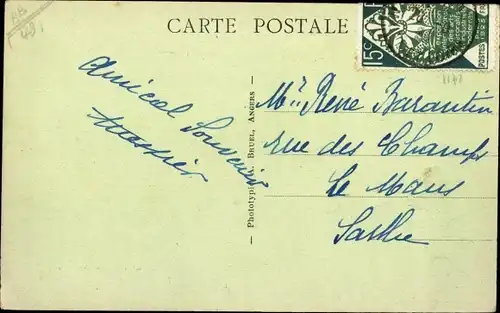 CARTE POSTALE
15c
POSTES
Amical Souvenir
Phototypie J. Bruel, Angers
Mr René Barantin
rue des Champs
Le Mans
Sarthe